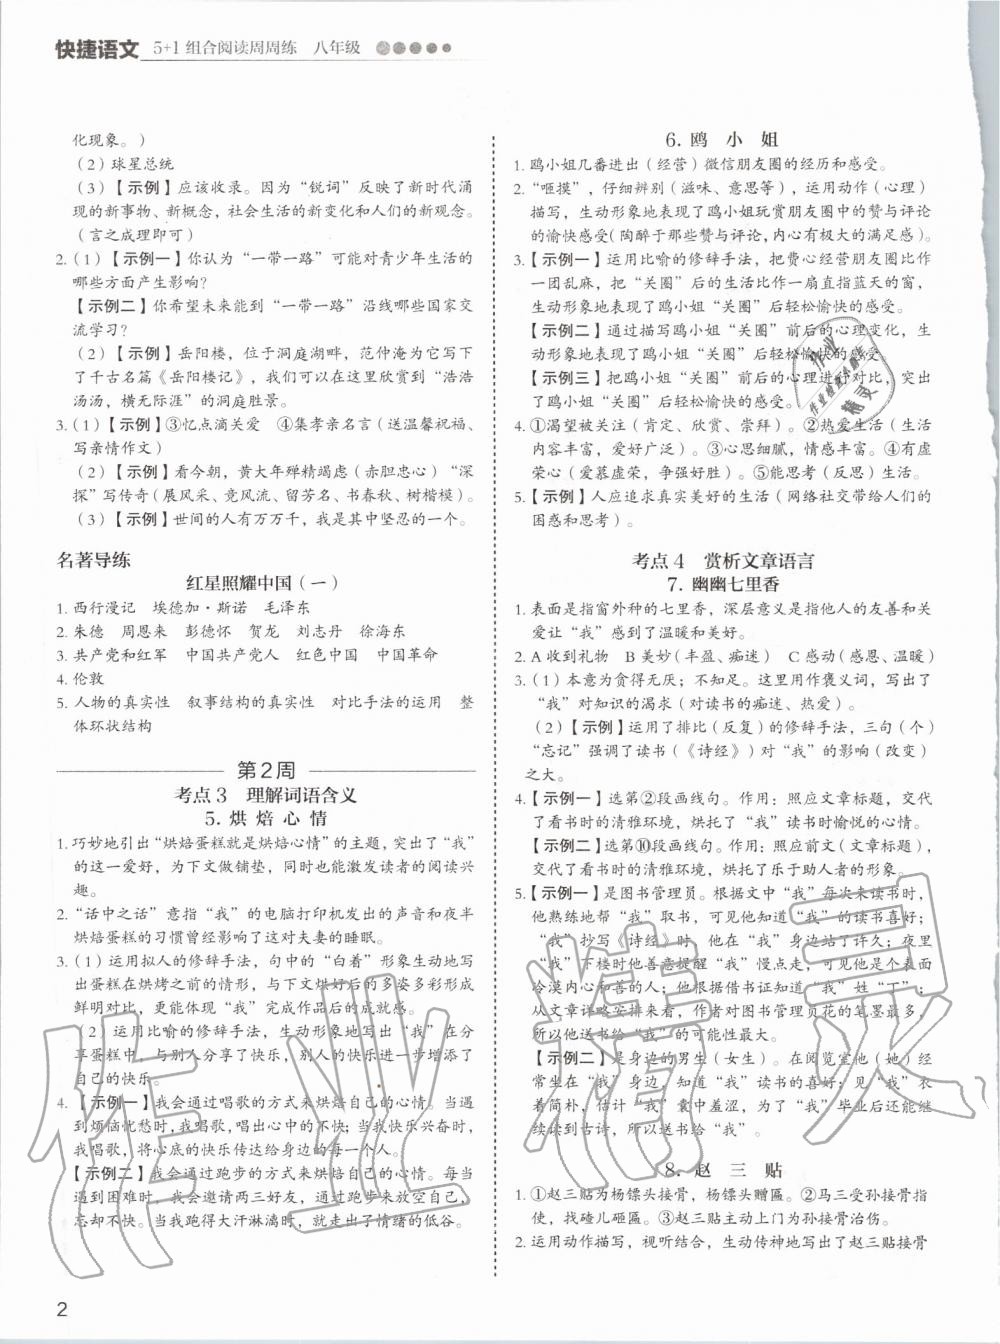 快捷语文 5+1组合阅读周周练 八年级
化现象。)
(2)球星总统
(3)【示例】应该收录。因为“锐词”反映了新时代涌
现的新事物、新概念，社会生活的新变化和人们的新观念。
(言之成理即可)
2.(1)【示例一】你认为“一带一路”可能对青少年生活的
哪些方面产生影响?
【示例二】你希望未来能到“一带一路”沿线哪些国家交
流学习?
(2)【示例】岳阳楼，位于洞庭湖畔，范仲淹为它写下
了千古名篇《岳阳楼记》，我们可以在这里欣赏到“浩浩
汤汤，横无际涯”的洞庭胜景。
3.(1)【示例】③忆点滴关爱 ④集孝亲名言(送温馨祝福、
写亲情作文)
(2)【示例】看今朝，黄大年殚精竭虑(赤胆忠心)“深
探”写传奇(展风采、竞风流、留芳名、书春秋、树楷模)。
(3)【示例】世间的人有万万千，我是其中坚忍的一个。
名著导练
红星照耀中国(一)
1. 西行漫记 埃德加·斯诺 毛泽东
2. 朱德 周恩来 彭德怀 贺龙 刘志丹 徐海东
3. 共产党和红军 中国共产党人 红色中国 中国革命
4. 伦敦
5. 人物的真实性 叙事结构的真实性 对比手法的运用 整
体环状结构
第2周
考点3 理解词语含义
5. 烘 焙 心 情
1. 巧妙地引出“烘焙蛋糕就是烘焙心情”的主题，突出了“我”
的这一爱好，为下文做铺垫，同时也能激发读者的阅读兴
趣。
2. “话中之话”意指“我”的电脑打印机发出的声音和夜半
烘焙蛋糕的习惯曾经影响了这对夫妻的睡眠。
3.(1)运用拟人的修辞手法，句中的“白着”形象生动地写
出蛋糕在烘烤之前的情形，与下文烘焙好后的多姿多彩形成
鲜明对比，更能体现“我”完成作品后的成就感。
(2)运用比喻的修辞手法，生动形象地写出“我”在分
享蛋糕中，与别人分享了快乐，别人的快乐似乎也增添了
自己的快乐。
4. 【示例一】我会通过唱歌的方式来烘焙自己的心情。当遇
到烦恼忧愁时，我唱歌，唱出心中的不快;当我快乐兴奋时，
我唱歌，将心底的快乐传达给身边的每一个人。
【示例二】我会通过跑步的方式来烘焙自己的心情。每当
遇到困难和挫折时，我会
忘却不快。当我跑得大汗淋漓时，就走出了情绪的低谷。
6. 鸥 小 姐
1. 鸥小姐几番进出(经营)微信朋友圈的经历和感受。
2. “咂摸”，仔细辨别(滋味、意思等)，运用动作(心理)
描写，生动形象地表现了鸥小姐玩赏朋友圈中的赞与评论
的愉快感受(陶醉于那些赞与评论，内心有极大的满足感)。
3. 【示例一】运用比喻的修辞手法，把费心经营朋友圈比作
一团乱麻，把“关圈”后的生活比作一扇直指蓝天的窗，
生动形象地表现了鸥小姐“关圈”后轻松愉快的感受。
【示例二】通过描写鸥小姐“关圈”前后的心理变化，生
动形象地表现了鸥小姐“关圈”后轻松愉快的感受。
【示例三】把鸥小姐“关圈”前后的心理进行对比，突出
了鸥小姐“关圈”后轻松愉快的感受。
4. ①渴望被关注(肯定、欣赏、崇拜)。②热爱生活(生活
内容丰富，爱好广泛)。③心思细腻，情感丰富。④有虚
荣心(爱慕虚荣，争强好胜)。⑤能思考(反思)生活。
5. 【示例】人应追求真实美好的生活(网络社交带给人们的
困惑和思考)。
考点4 赏析文章语言
7. 幽幽七里香
1. 表面是指窗外种的七里香，深层意义是指他人的友善和关
爱让“我”感到了温暖和美好。
2. A 收到礼物 B 美妙(丰盈、痴迷) C 感动(感恩、温暖)
3.(1)本意为贪得无厌;不知足。这里用作褒义词，写出了
“我”对知识的渴求(对读书的痴迷、热爱)。
(2)【示例】运用了排比(反复)的修辞手法，三句(个)
“忘记”强调了读书(《诗经》)对“我”的影响(改变)
之大。
4. 【示例一】选第②段画线句。作用:照应文章标题，交代
了看书时的清雅环境，烘托了“我”读书时愉悦的心情。
【示例二】选第⑩段画线句。作用:照应前文(文章标题)，
交代了看书时的清雅环境，烘托了乐于助人者的形象。
5. 【示例一】是图书管理员。根据文中“我”每次来读书时，
他熟练地帮“我”取书，可见他知道“我”的读书喜好;
“我”抄写《诗经》时，他在“我”身边站了许久;夜里
“我”下楼时他善意提醒“我”慢点走，可见他是个表面
冷漠内心和善的人;他根据借书证知道“我”姓“丁”;
从文章详略安排来看，作者对图书管理员花的笔墨最多，
所以他送书给“我”的可能性最大。
【示例二】是身边的男生(女生)。在阅览室他(她)经
常坐在“我”身边，知道“我”读书的喜好;见“我”衣
着简朴，估计“我”囊中羞涩，为了“我”毕业后还能继
续读到古诗，所以买书送给“我”。
8. 赵 三 贴
1. ①赵三贴为杨镖头接骨，杨镖头赠匾。②马三受孙接骨指
使，找碴儿砸匾。③赵三贴主动上门为孙接骨治伤。
2. 运用动作描写，视听结合，生动传神地写出了赵三贴接骨
2
作业精灵